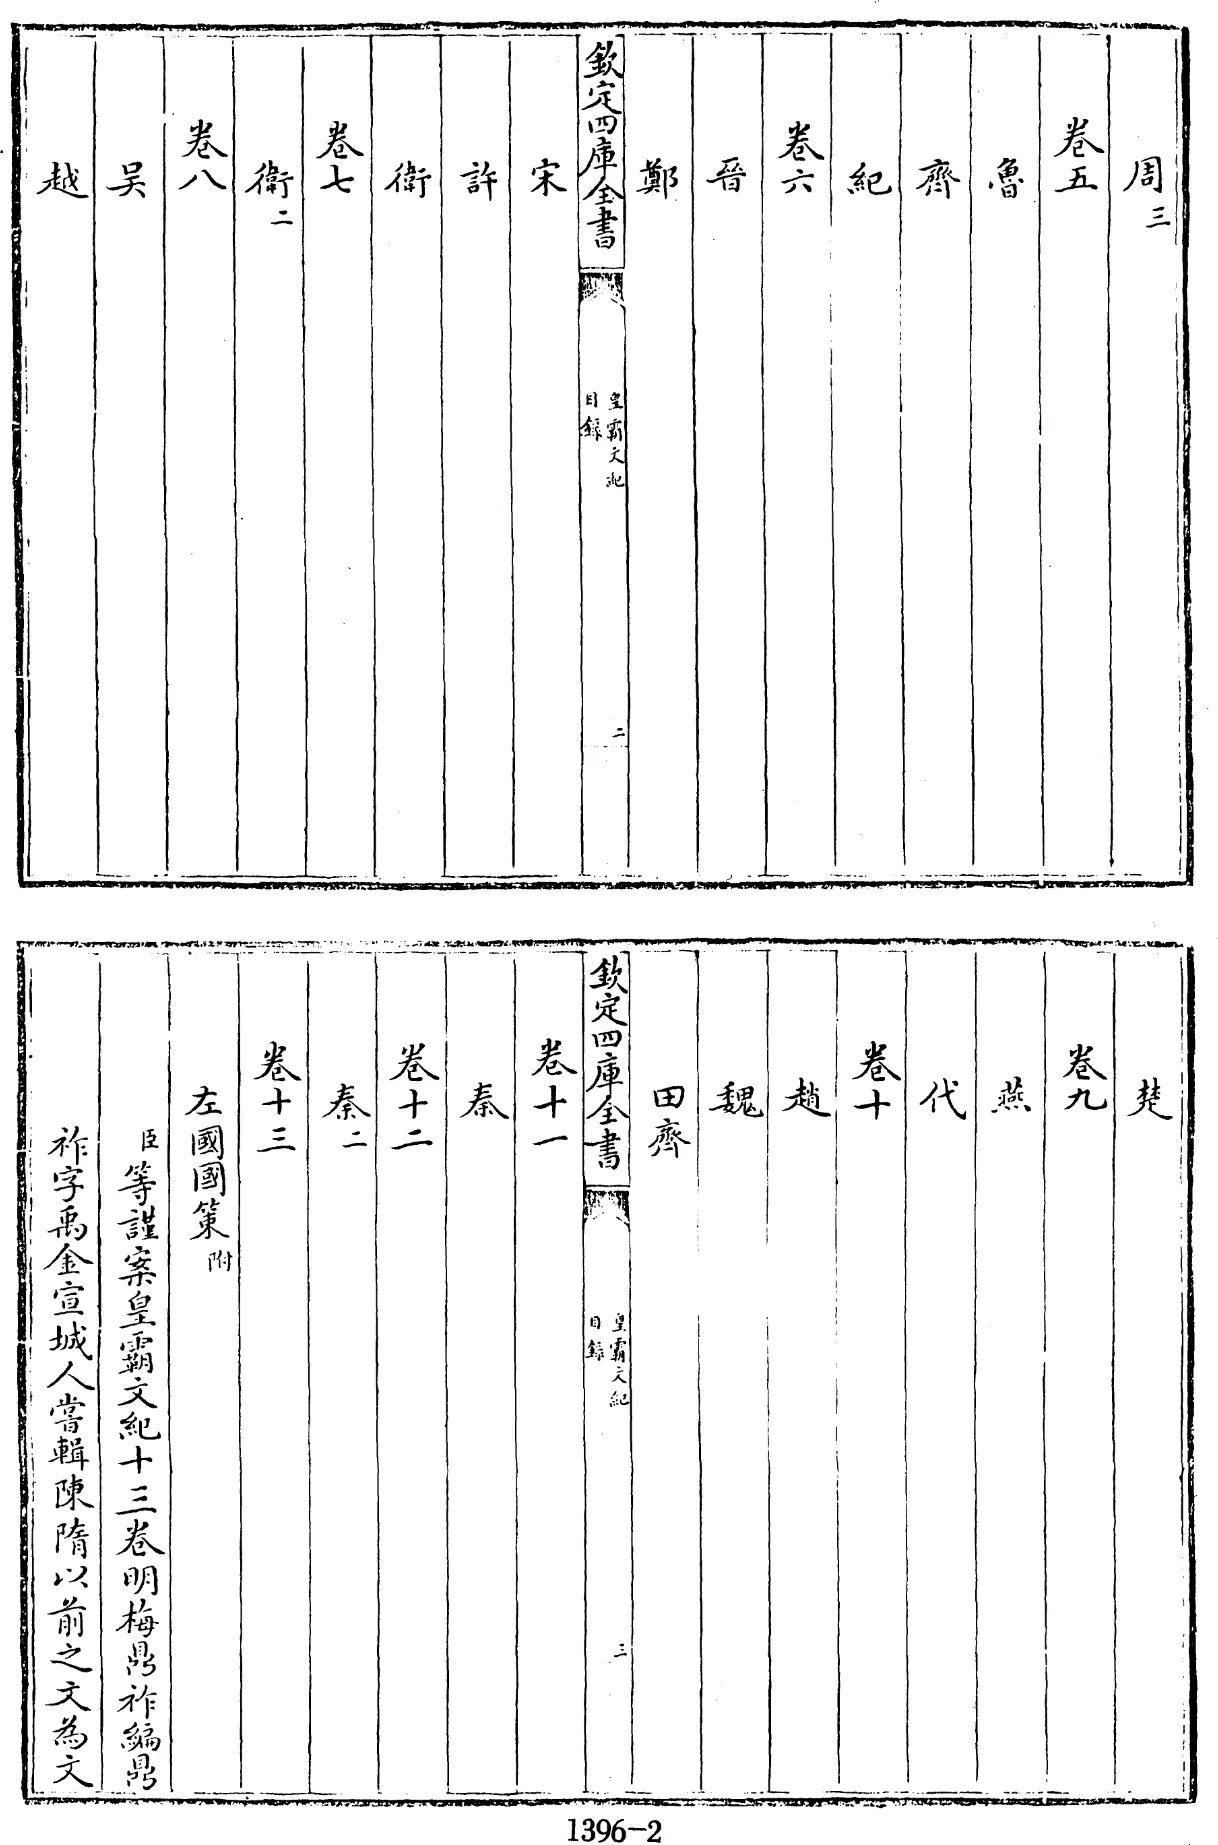 周三
卷五
魯
齊
紀
卷六
晉
鄭
欽定四庫全書
皇霸文紀
目錄
二
宋
許
衛
卷七
衛二
卷八
吴
越
楚
卷九
燕
代
卷十
趙
魏
田齊
欽定四庫全書
皇霸文紀
目錄
三
卷十一
秦
卷十二
秦二
卷十三
左國國策附
臣等謹案皇霸文紀十三卷明梅鼎祚編鼎
祚字禹金宣城人嘗輯陳隋以前之文為文
1396-2